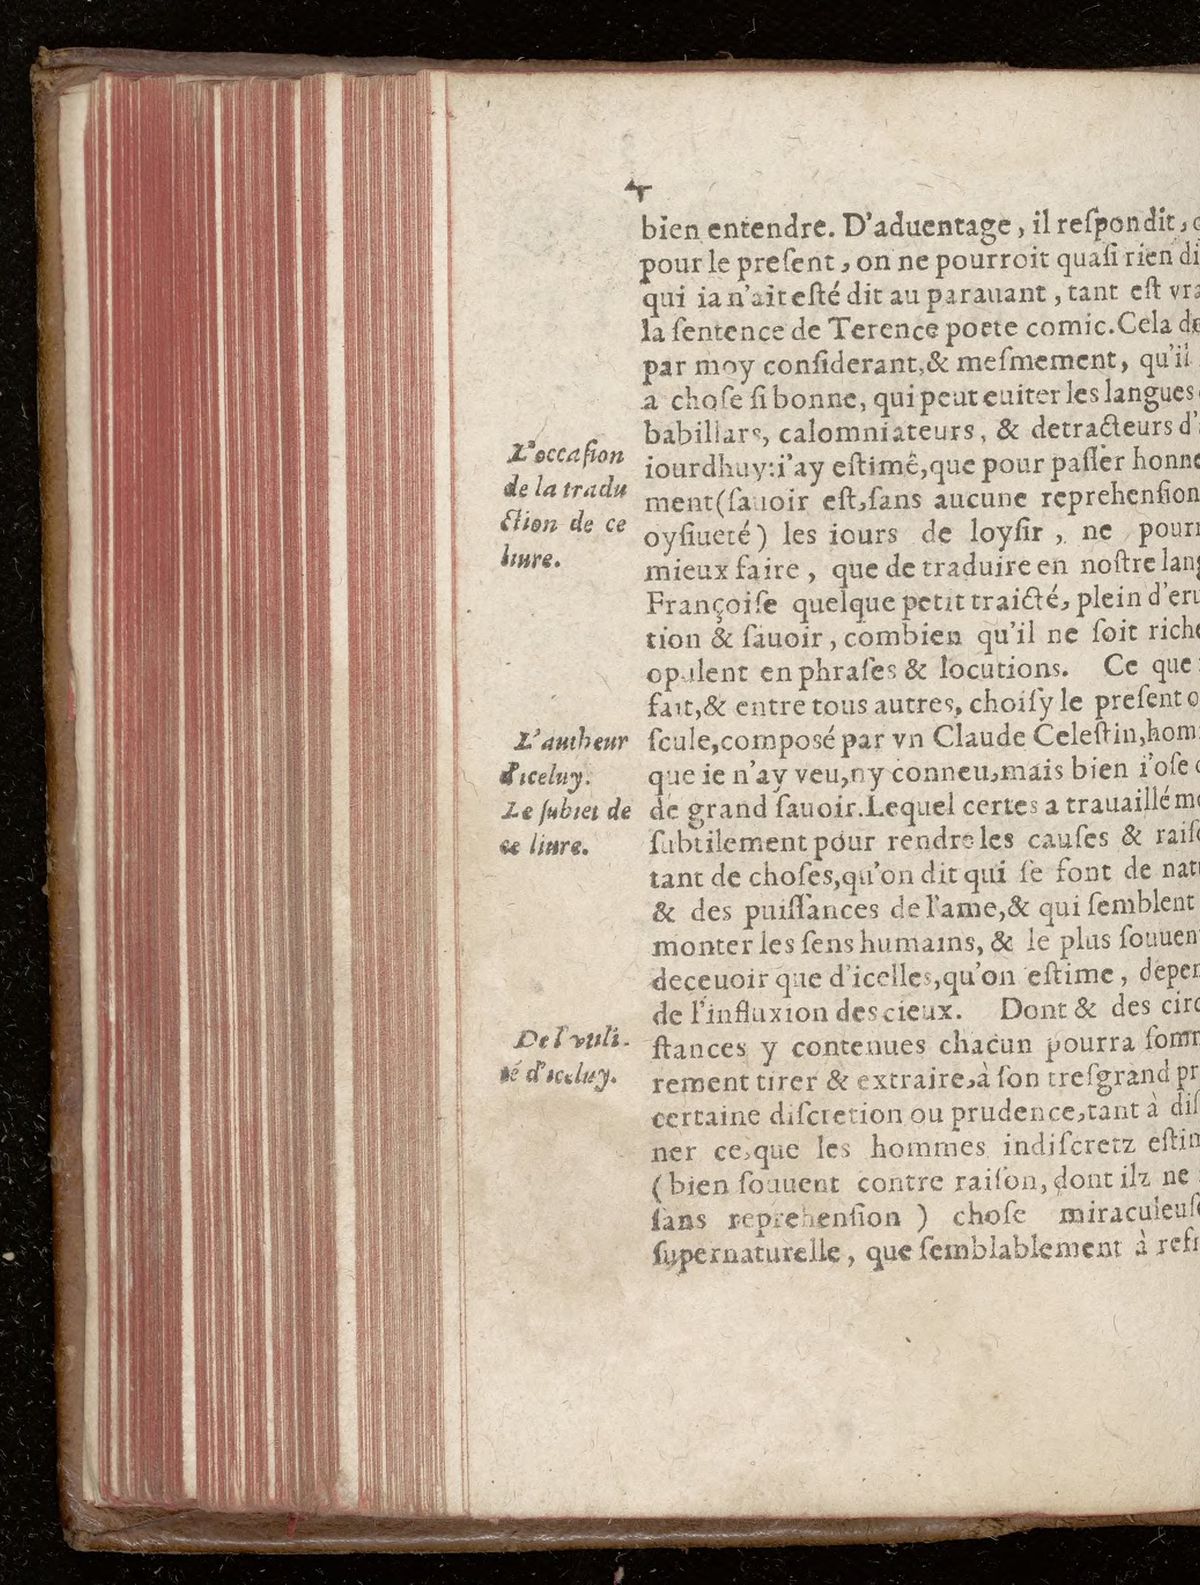 4
bien entendre. D'aduentage, il reſpondit,
pour le preſent, on ne pourroit quaſi rien di
qui ia n'ait eſté dit au parauant, tant eſt vra
la ſentence de Terence poete comic. Cela de
par moy conſiderant, & meſmement, qu'il
a choſe ſi bonne, qui peut euiter les langues
babillars, calomniateurs, & detracteurs d'
iourdhuy: i'ay eſtimé, que pour paſſer honne
ment (ſauoir eſt, ſans aucune reprehenſion
oyſiueté) les iours de loyſir, ne pourr
mieux faire, que de traduire en noſtre lang
Françoiſe quelque petit traicté, plein d'eru
tion & ſauoir, combien qu'il ne ſoit riche
opulent en phraſes & locutions. Ce que
fait, & entre tous autres, choiſy le preſent o
ſcule, compoſé par vn Claude Celeſtin, hom
que ie n'ay veu, ny conneu, mais bien i'oſe
de grand ſauoir. Lequel certes a trauaillé me
ſubtilement pour rendre les cauſes & raiſo
tant de choſes, qu'on dit qui ſe font de nat
& des puiſſances de l'ame, & qui ſemblent
monter les ſens humains, & le plus ſouuen
deceuoir que d'icelles, qu'on eſtime, depen
de l'influxion des cieux. Dont & des circ
ſtances y contenues chacun pourra ſomm
rement tirer & extraire, à ſon treſgrand pr
certaine diſcretion ou prudence, tant à diſ
ner ce, que les hommes indiſcretz eſtim
(bien ſouuent contre raiſon, dont ilz ne
ſans reprehenſion) choſe miraculeuſe
ſupernaturelle, que ſemblablement à refr
L'occaſion
de la tradu
ction de ce
liure.
L'autheur
d'iceluy.
Le ſubiet de
ce liure.
De l'vtili-
té d'iceluy.